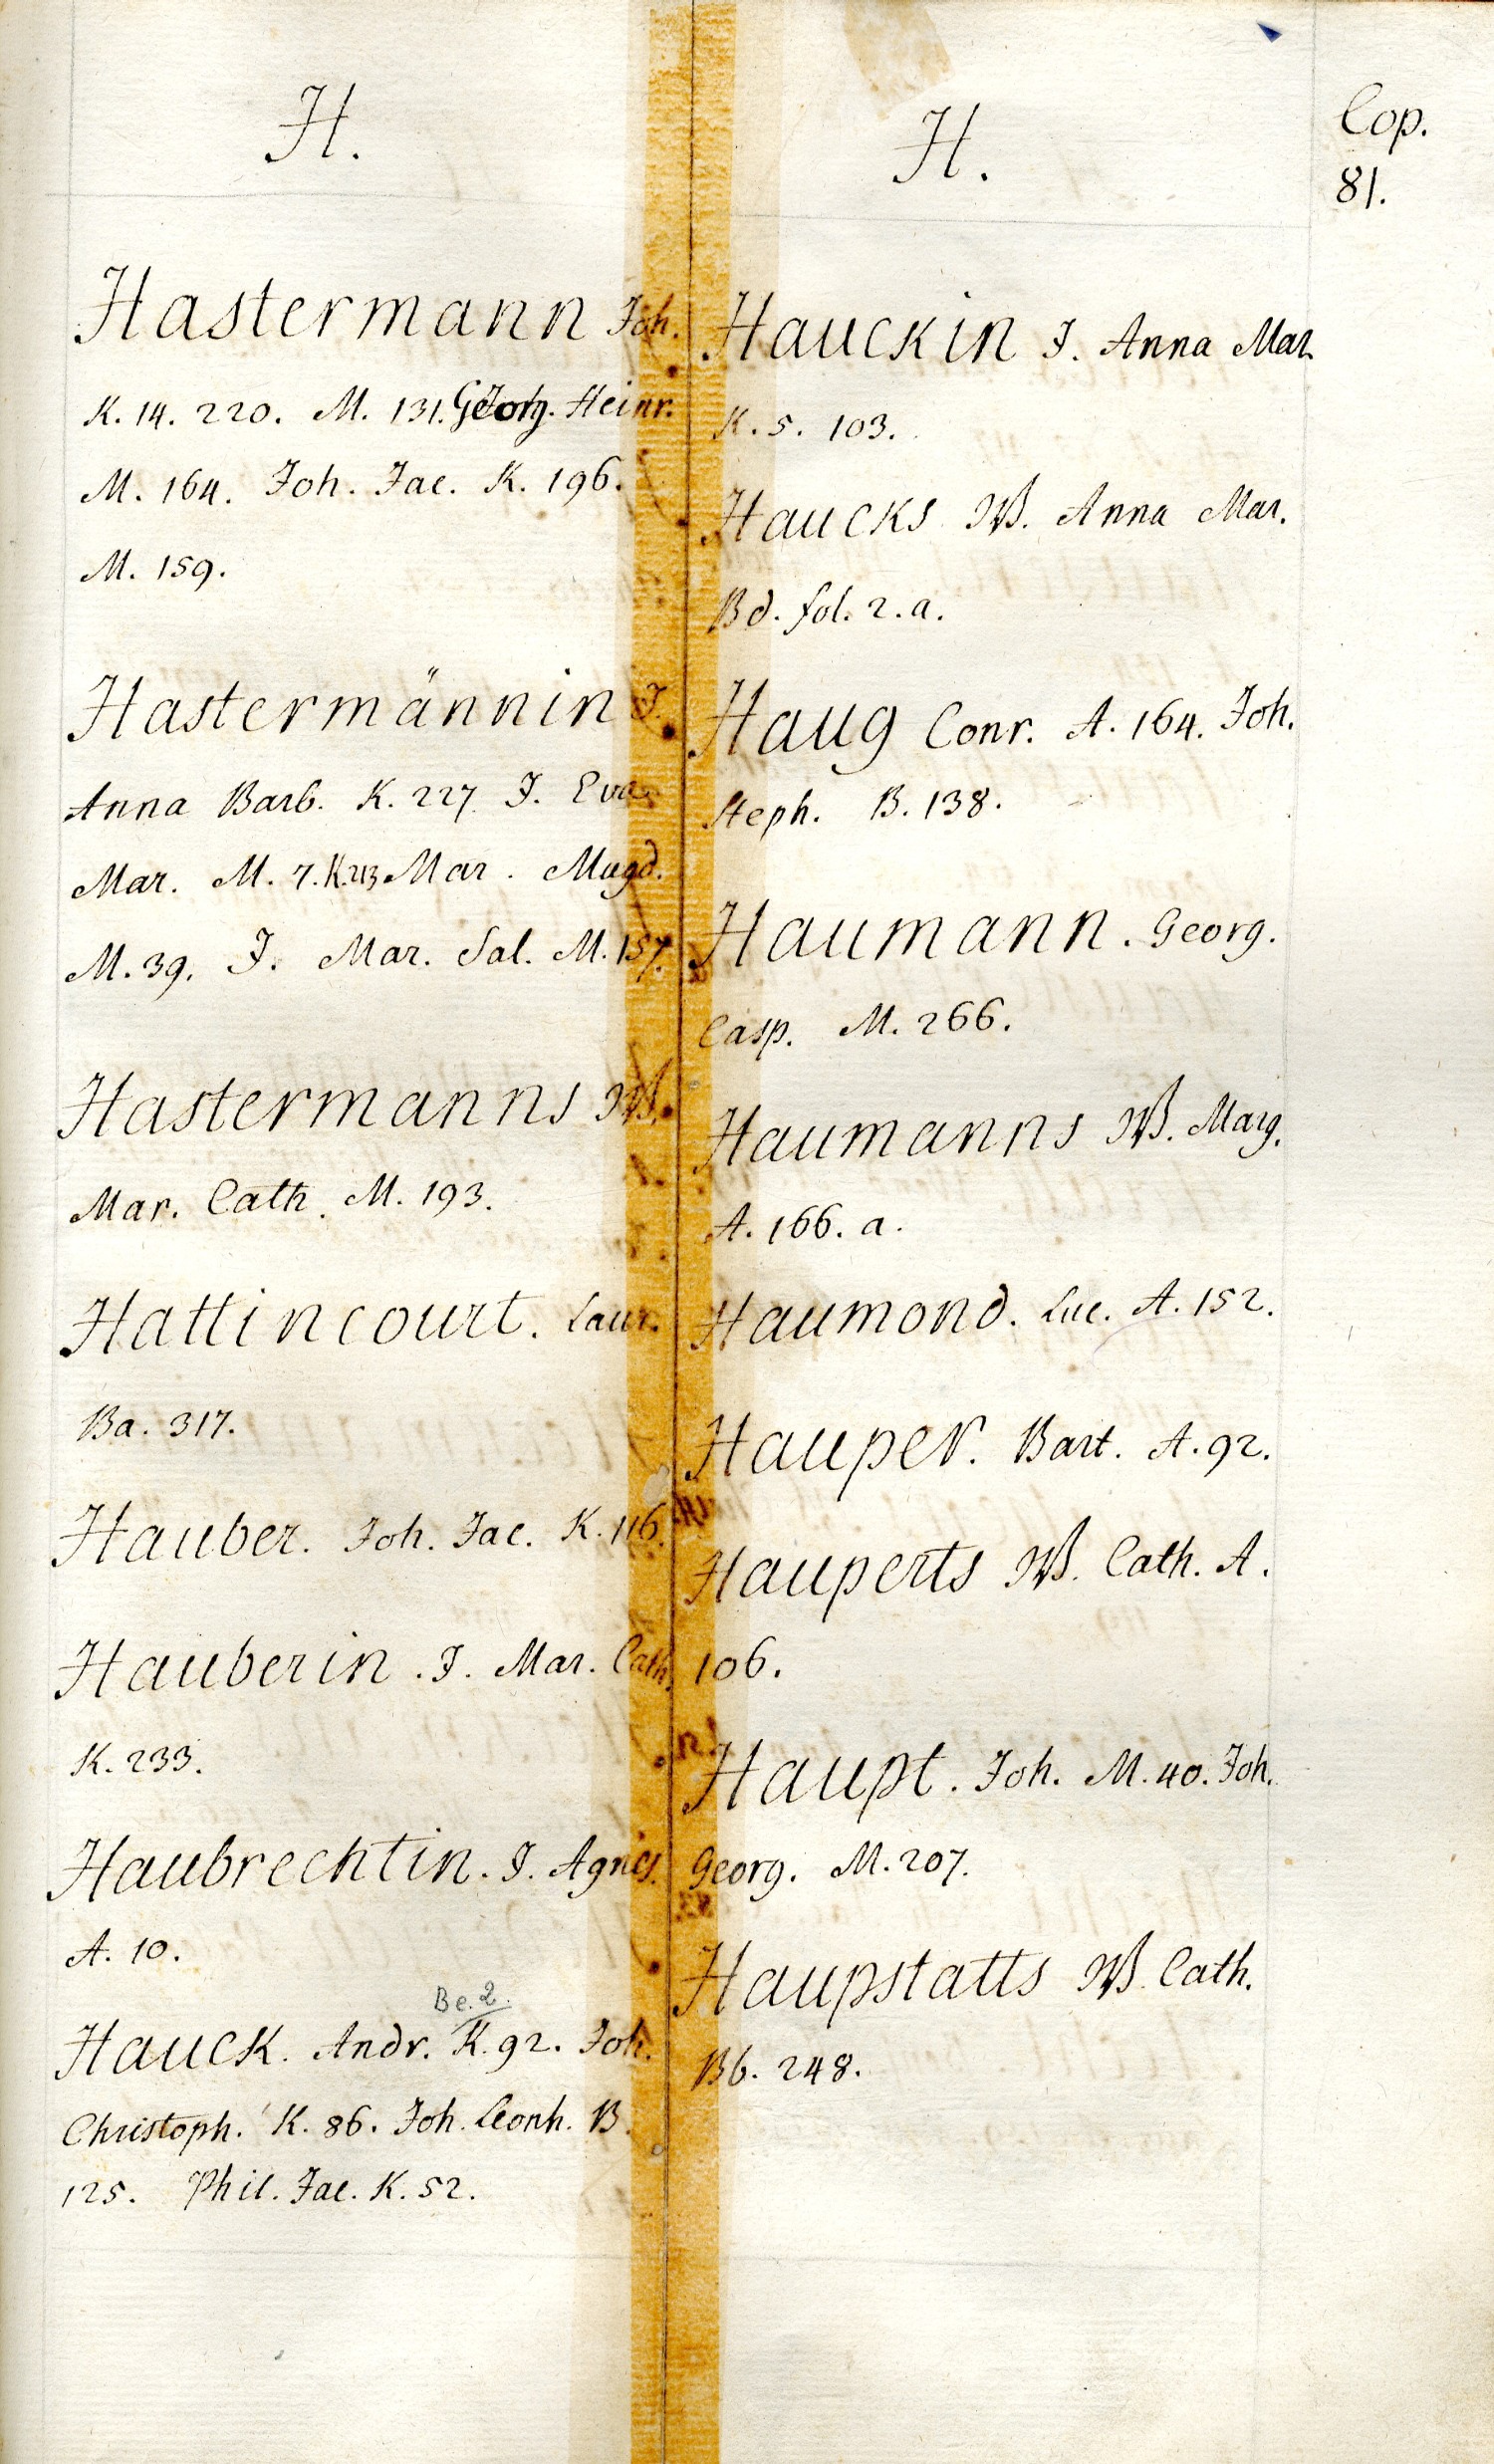 H.
Hastermann Joh.
K. 14. 220. M. 131. Georg. Heinr.
M. 164. Joh. Jac. K. 196.
M. 159.
Hastermännin J.
Anna Barb. K. 227. J. Eva
Mar. M. 7. K. 213 Mar. Magd.
M. 39. J. Mar. Sal. M. 157.
Hastermanns W.
Mar. Cath. M. 193.
Hattincourt. Laur.
Ba. 317.
Hauber. Joh. Jac. K. 116.
Hauberin. J. Mar. Cath.
K. 233.
Haubrechtin. J. Agnes.
A. 10.
Be. 2.
Hauck. Andr. K. 92. Joh.
Christoph. K. 86. Joh. Leonh. B.
125. Phil. Jac. K. 52.
H.
Hauckin J. Anna Mar.
K. 5. 103.
Haucks W. Anna Mar.
Bd. fol. 2. a.
Haug Conr. A. 164. Joh.
Steph. B. 138.
Haumann. Georg.
Casp. M. 266.
Haumanns W. Marg.
A. 166. a.
Haumond. Luc. A. 152.
Hauper. Bart. A. 92.
Hauperts W. Cath. A.
106.
Haupt. Joh. M. 40. Joh.
Georg. M. 207.
Haupstatts W. Cath.
Bb. 248.
Cop.
81.